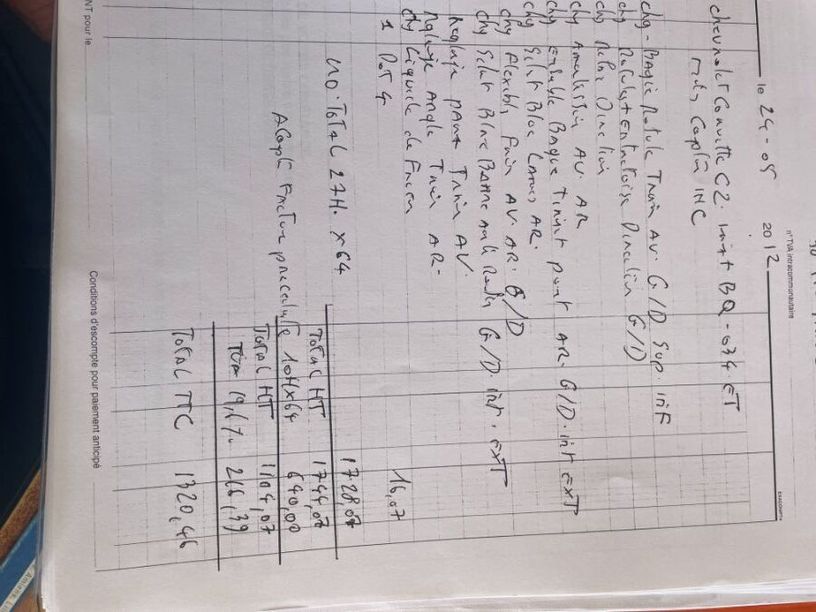 n° TVA intracommunautaire
le 24-05 2012
EXACOMPTA
Chevrolet Corvette C2. Imat BQ-034-ET
chg - Bague Rotule Train AV. G/D Sup. inF
chg Rotules Direction G/D
chg Relai Direction
chg Amortisseur AV. AR
chg Ensemble Bague pont AR. G/D. int ExT
chg Silent Bloc Lames AR.
chg Flexible Frein AV. AR. G/D
chg Silent Bloc Barre G/D. int. ExT
Reglage pont Train AV.
Reglage Angle Train AR-
chg Liquide de Frein
1 DOT 4 16,07
MO. Total 27H. x 64 1728,00
Total HT 1744,07
Acompte Facture precedente 10Hx64 640,00
Total HT 1104,07
TVA 19,6% 216,39
Total TTC 1320,46
Conditions d'escompte pour paiement anticipé
NT pour le